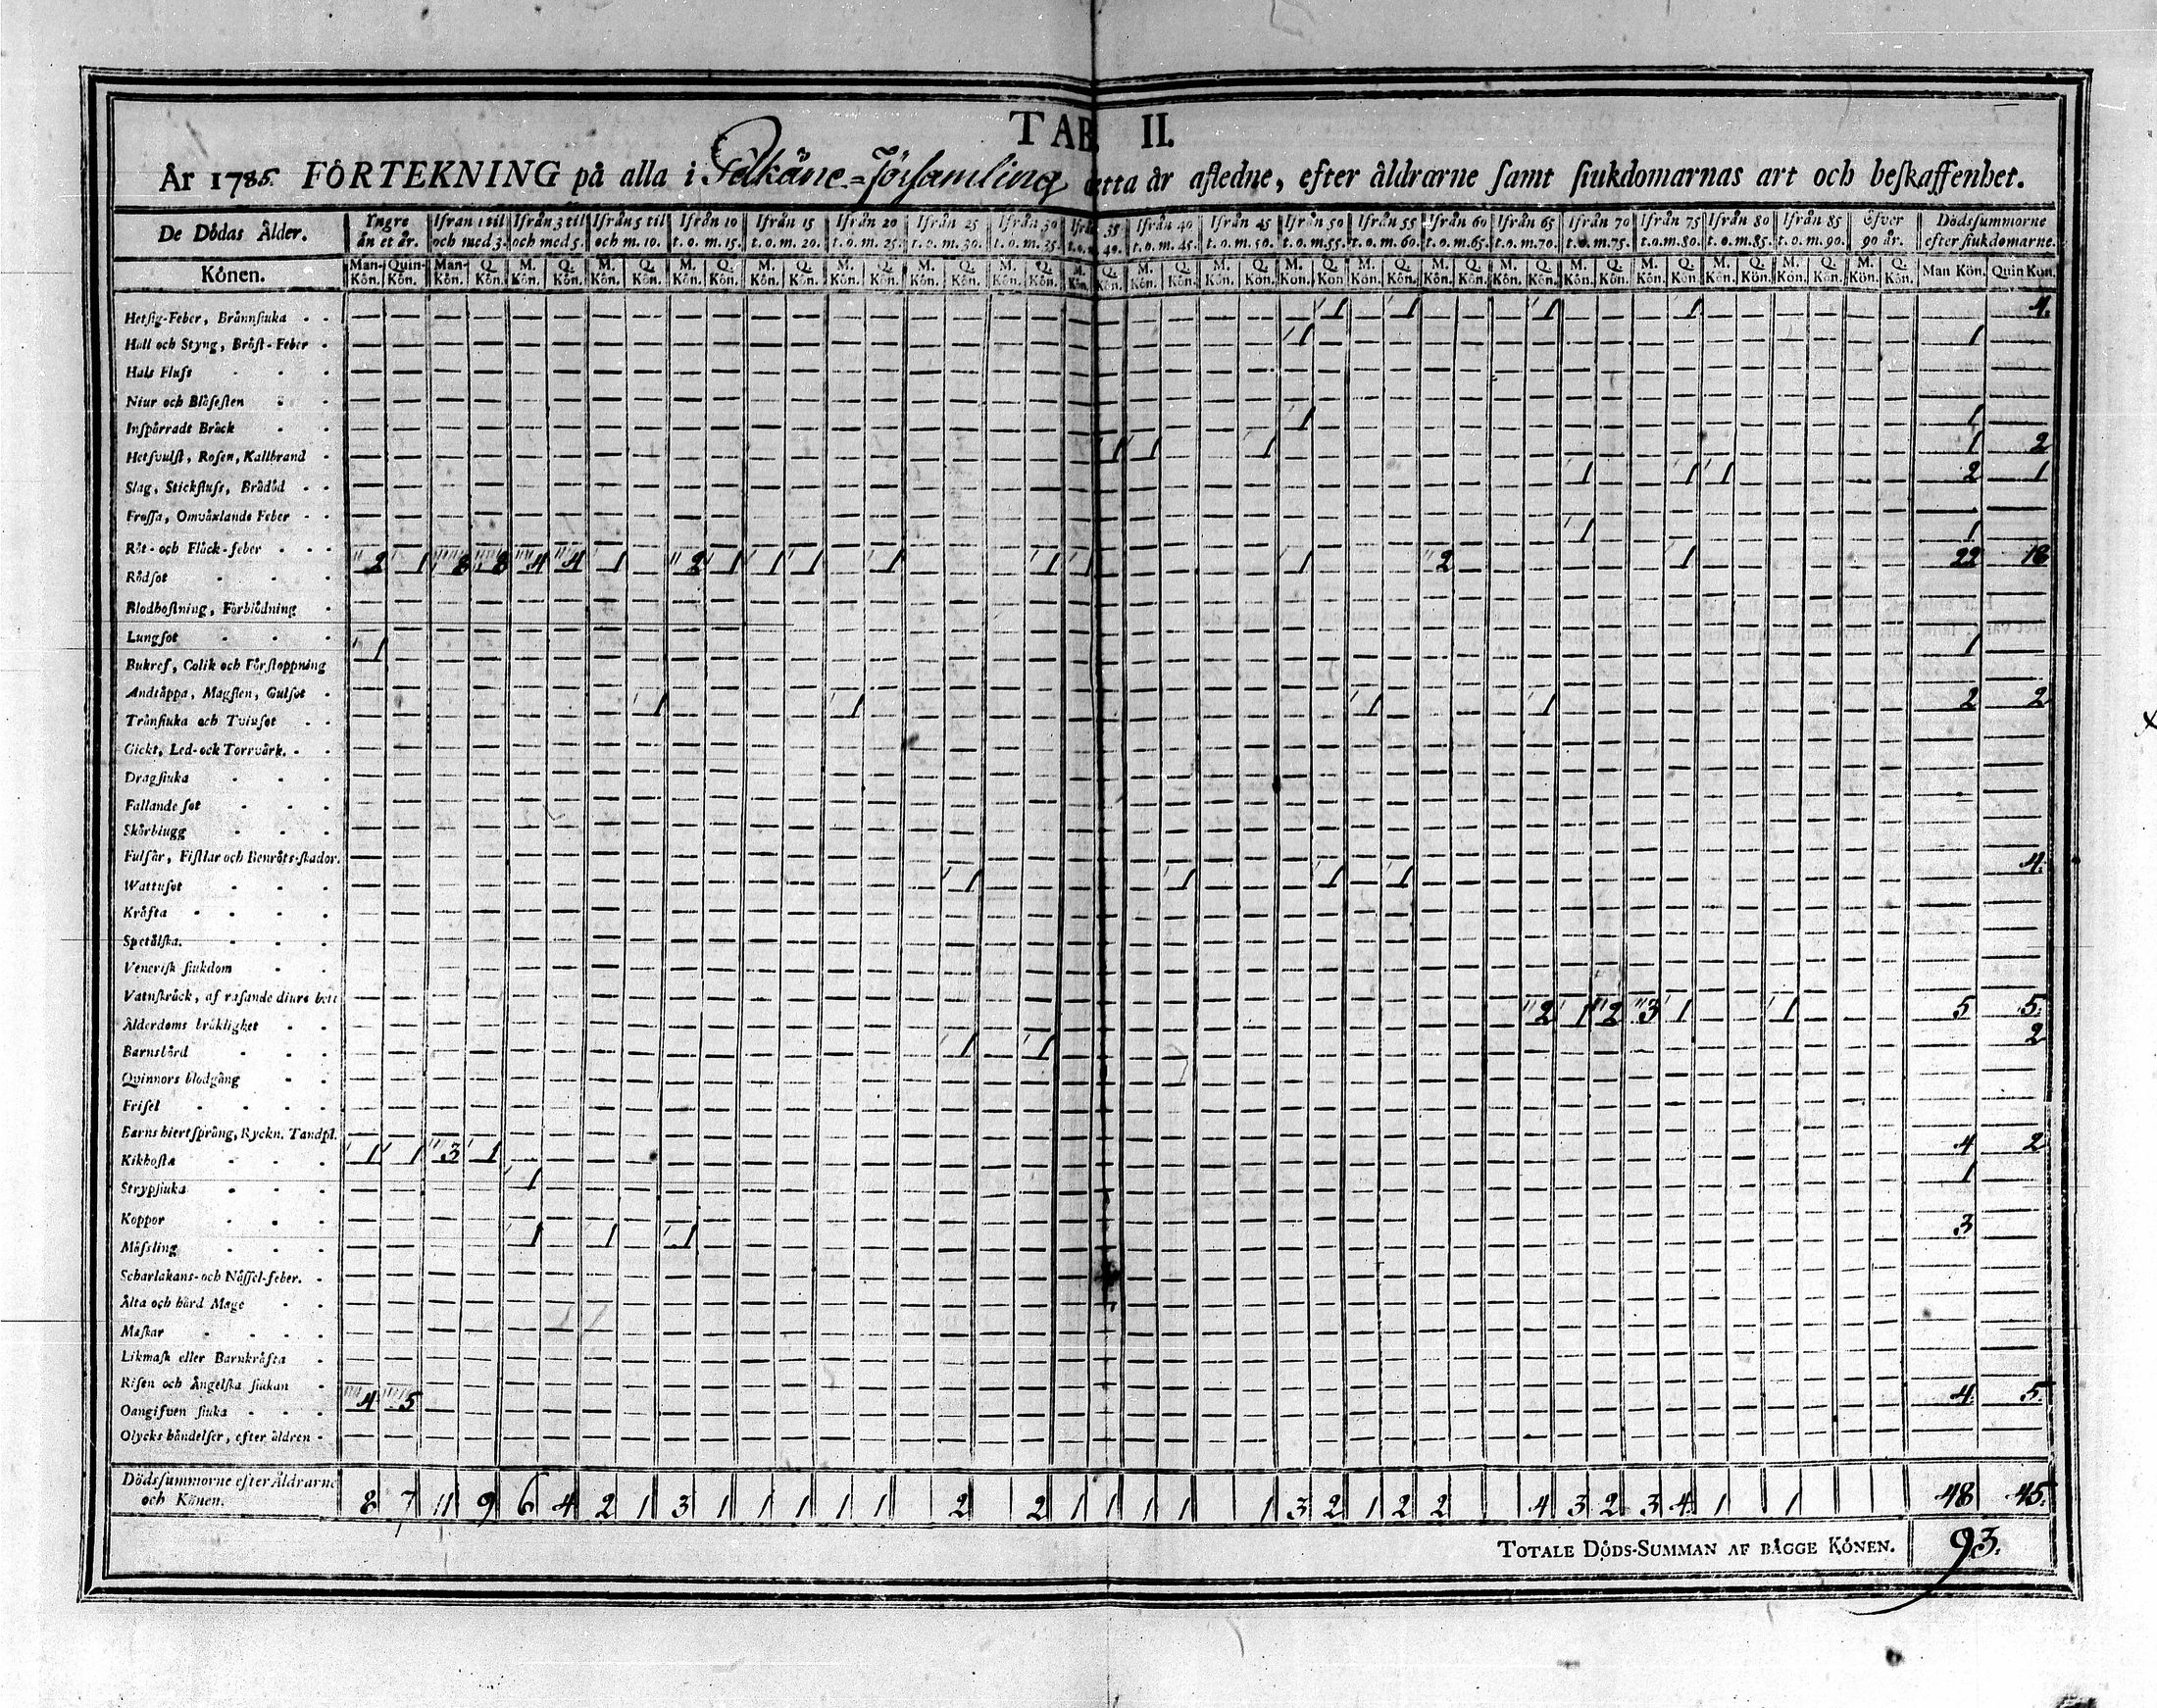 TAB II.
År 1785. FÖRTEKNING på alla i Pelkäne-Församling detta år afledne, efter åldrarne samt siukdomarnas art och beskaffenhet.
De Dödas Ålder. Yngre än et år. Ifrån 1 til och med 3. Ifrån 3 til och med 5. Ifrån 5 til och m. 10. Ifrån 10 t. o. m. 15. Ifrån 15 t. o. m. 20. Ifrån 20 t. o. m. 25. Ifrån 25 t. o. m. 30. Ifrån 30 t. o. m. 35. Ifrån 35 t. o. 40. Ifrån 40 t. o. m. 45. Ifrån 45 t. o. m. 50. Ifrån 50 t. o. m. 55. Ifrån 55 t. o. m. 60. Ifrån 60 t. o. m. 65. Ifrån 65 t. o. m. 70. Ifrån 70 t. o. m. 75. Ifrån 75 t. o. m. 80. Ifrån 80 t. o. m. 85. Ifrån 85 t. o. m. 90. Öfver 90 år. Dödssummorne efter siukdomarne.
Könen. Man-Kön. Quin-Kön. Man-Kön. Q. Kön. M. Kön. Q. Kön. M. Kön. Q. Kön. M. Kön. Q. Kön. M. Kön. Q. Kön. M. Kön. Q. Kön. M. Kön. Q. Kön. M. Kön. Q. Kön. M. Kön. Q. Kön. M. Kön. Q. Kön. M. Kön. Q. Kön. M. Kön. Q. Kön. M. Kön. Q. Kön. M. Kön. Q. Kön. M. Kön. Q. Kön. M. Kön. Q. Kön. M. Kön. Q. Kön. M. Kön. Q. Kön. M. Kön. Q. Kön. M. Kön. Q. Kön. Man Kön. Quin Kön.
Hetsig-Feber, Brännsiuka 1 1 1 1 4.
Håll och Styng, Bröst-Feber 1 1
Hals Fluss
Niur och Blåsesten
Inspärradt Bråck 1 1
Hetsvulst, Rosen, Kallbrand 1 1 1 1 2
Slag, Stickfluss, Brådöd 1 1 1 2 1
Frossa, Omväxlande Feber
Röt- och Fläck-feber 1 1
Rödsot 2 1 8 8 4 4 1 2 1 1 1 1 1 1 1 2 1 22 18
Blodhostning, Förblödning
Lungsot
Bukref, Colik och Förstoppning 1 1
Andtäppa, Magsten, Gulsot
Trånsiuka och Tvinsot 1 1 1 1 2 2
Gickt, Led-ock Torrvärk.
Dragsiuka
Fallande sot
Skörbiugg
Fulsår, Fistlar och Benröts-skador.
Wattusot 1 1 1 1 4.
Kräfta
Spetälska.
Venerisk siukdom
Vatnskräck, af rasande diurs bett
Ålderdoms bräklighet 2 1 2 3 1 1 5 5.
Barnsbörd 1 1 2
Qvinnors blodgång
Frisel
Barns hiertsprång, Ryckn. Tandpl.
Kikhosta 1 1 3 1 4 2
Strypsiuka 1 1
Koppor
Mässling 1 1 1 3
Scharlakans- och Nässel-feber.
Älta och hård Mage
Maskar
Likmask eller Barnkräfta
Risen och Ängelska siukan
Oangifven siuka 4 5 4. 5.
Olyckshändelser, efter äldren
Dödssummorne efter Åldrarne och Könen. 8 7 11 9 6 4 2 1 3 1 1 1 1 1 2 2 1 1 1 1 1 3 2 1 2 2 4 3 2 3 4 1 1 48 45.
TOTALE DÖDS-SUMMAN AF BÄGGE KÖNEN. 93.